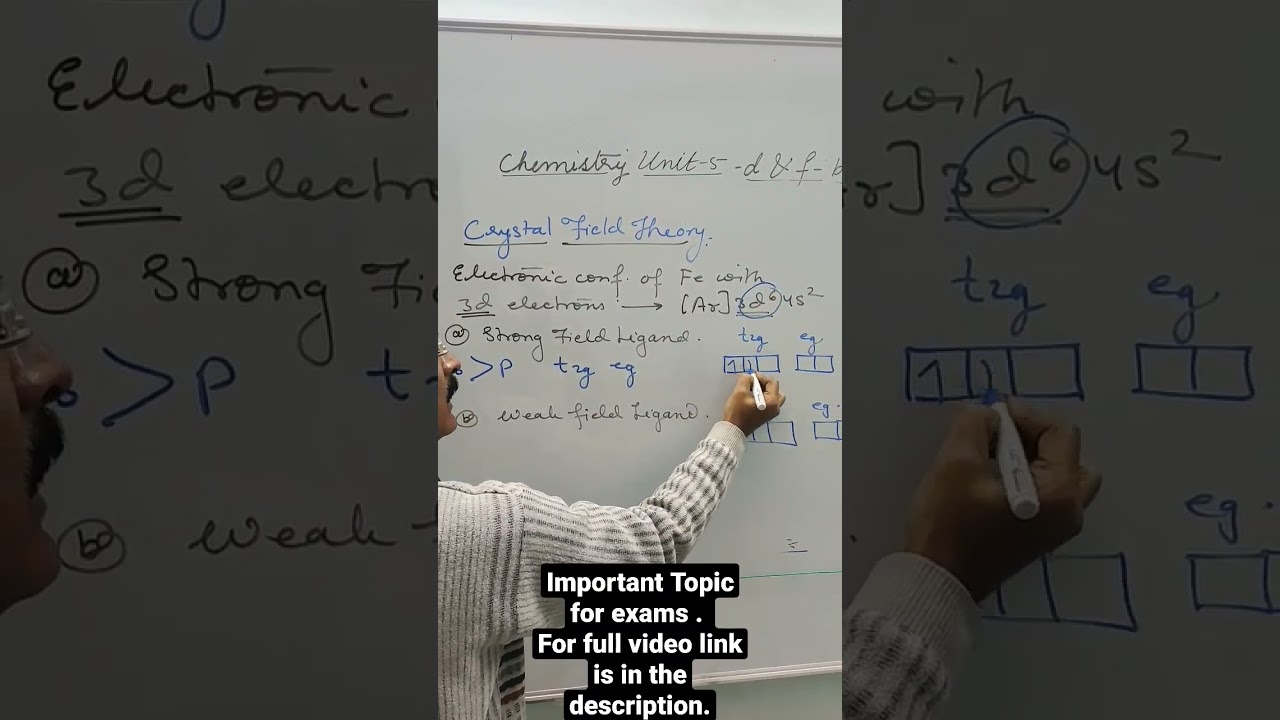 Chemistry Unit-5 -d & f-
Crystal Field Theory.
Electronic conf. of Fe with
3d electrons → [Ar] 3d6 4s2
(a) Strong Field Ligand. t2g eg
> P t2g eg
1 1
(b) Weak field Ligand. eg.
Important Topic
for exams .
For full video link
is in the
description.